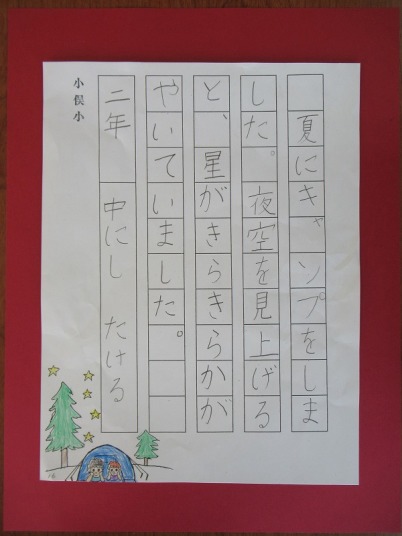 夏にキャンプをしま
した。夜空を見上げる
と、星がきらきらかが
やいていました。
二年 中にし たける
小俣小